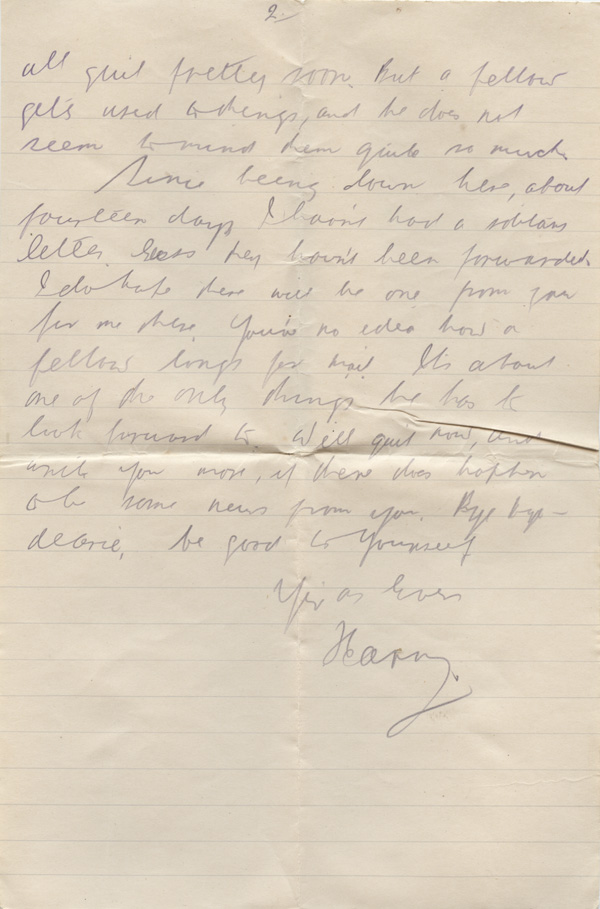 2.
all quit pretty soon. But a fellow
gets used to things, and he does not
seem to mind them quite so much.
Since being down here, about
fourteen days I havn't had a
letter. Guess they havn't been forwarded.
I do hope there will be one from you
for me there. You've no idea how a
fellow longs for mail. It's about
one of the only things he has to
look forward to. Will quit now, and
write you more, if there does happen
to be some news from you. Bye bye-
dearie, be good to yourself
as Ever
Harry.